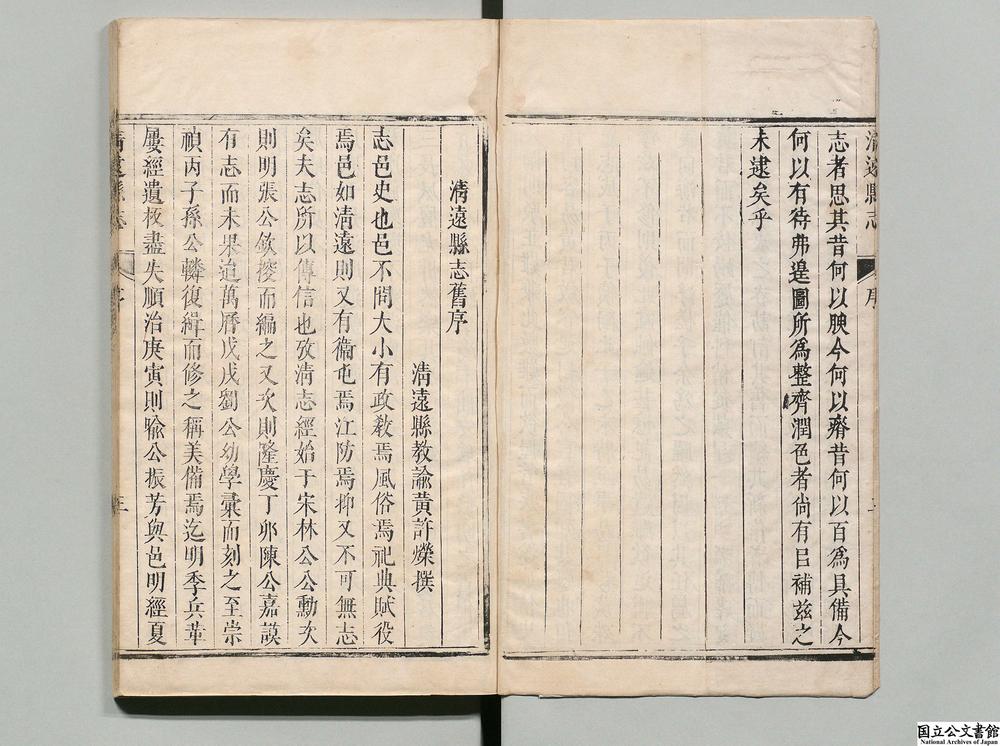 清遠縣志
序
二
志者思其昔何以腴今何以瘠昔何以百爲具備今
何以有待弗遑圖所爲整齊潤色者尙有㠯補茲之
未逮矣乎
清遠縣志舊序
清遠縣教諭黃許爃撰
志邑史也邑不問大小有政教焉風俗焉祀典賦役
焉邑如清遠則又有衞屯焉江防焉抑又不可無志
矣夫志所以傳信也攷清志經始于宋林公公勳次
則明張公欽控而編之又次則隆慶丁卯陳公嘉謨
有志而未果迨萬曆戊戌蜀公幼學彚而刻之至崇
禎丙子孫公轔復緝而修之稱美備焉迄明季兵革
屢經遺板盡失順治庚寅則喩公振芳與邑明經夏
清遠縣志
序
三
国立公文書館
National Archives of Japan